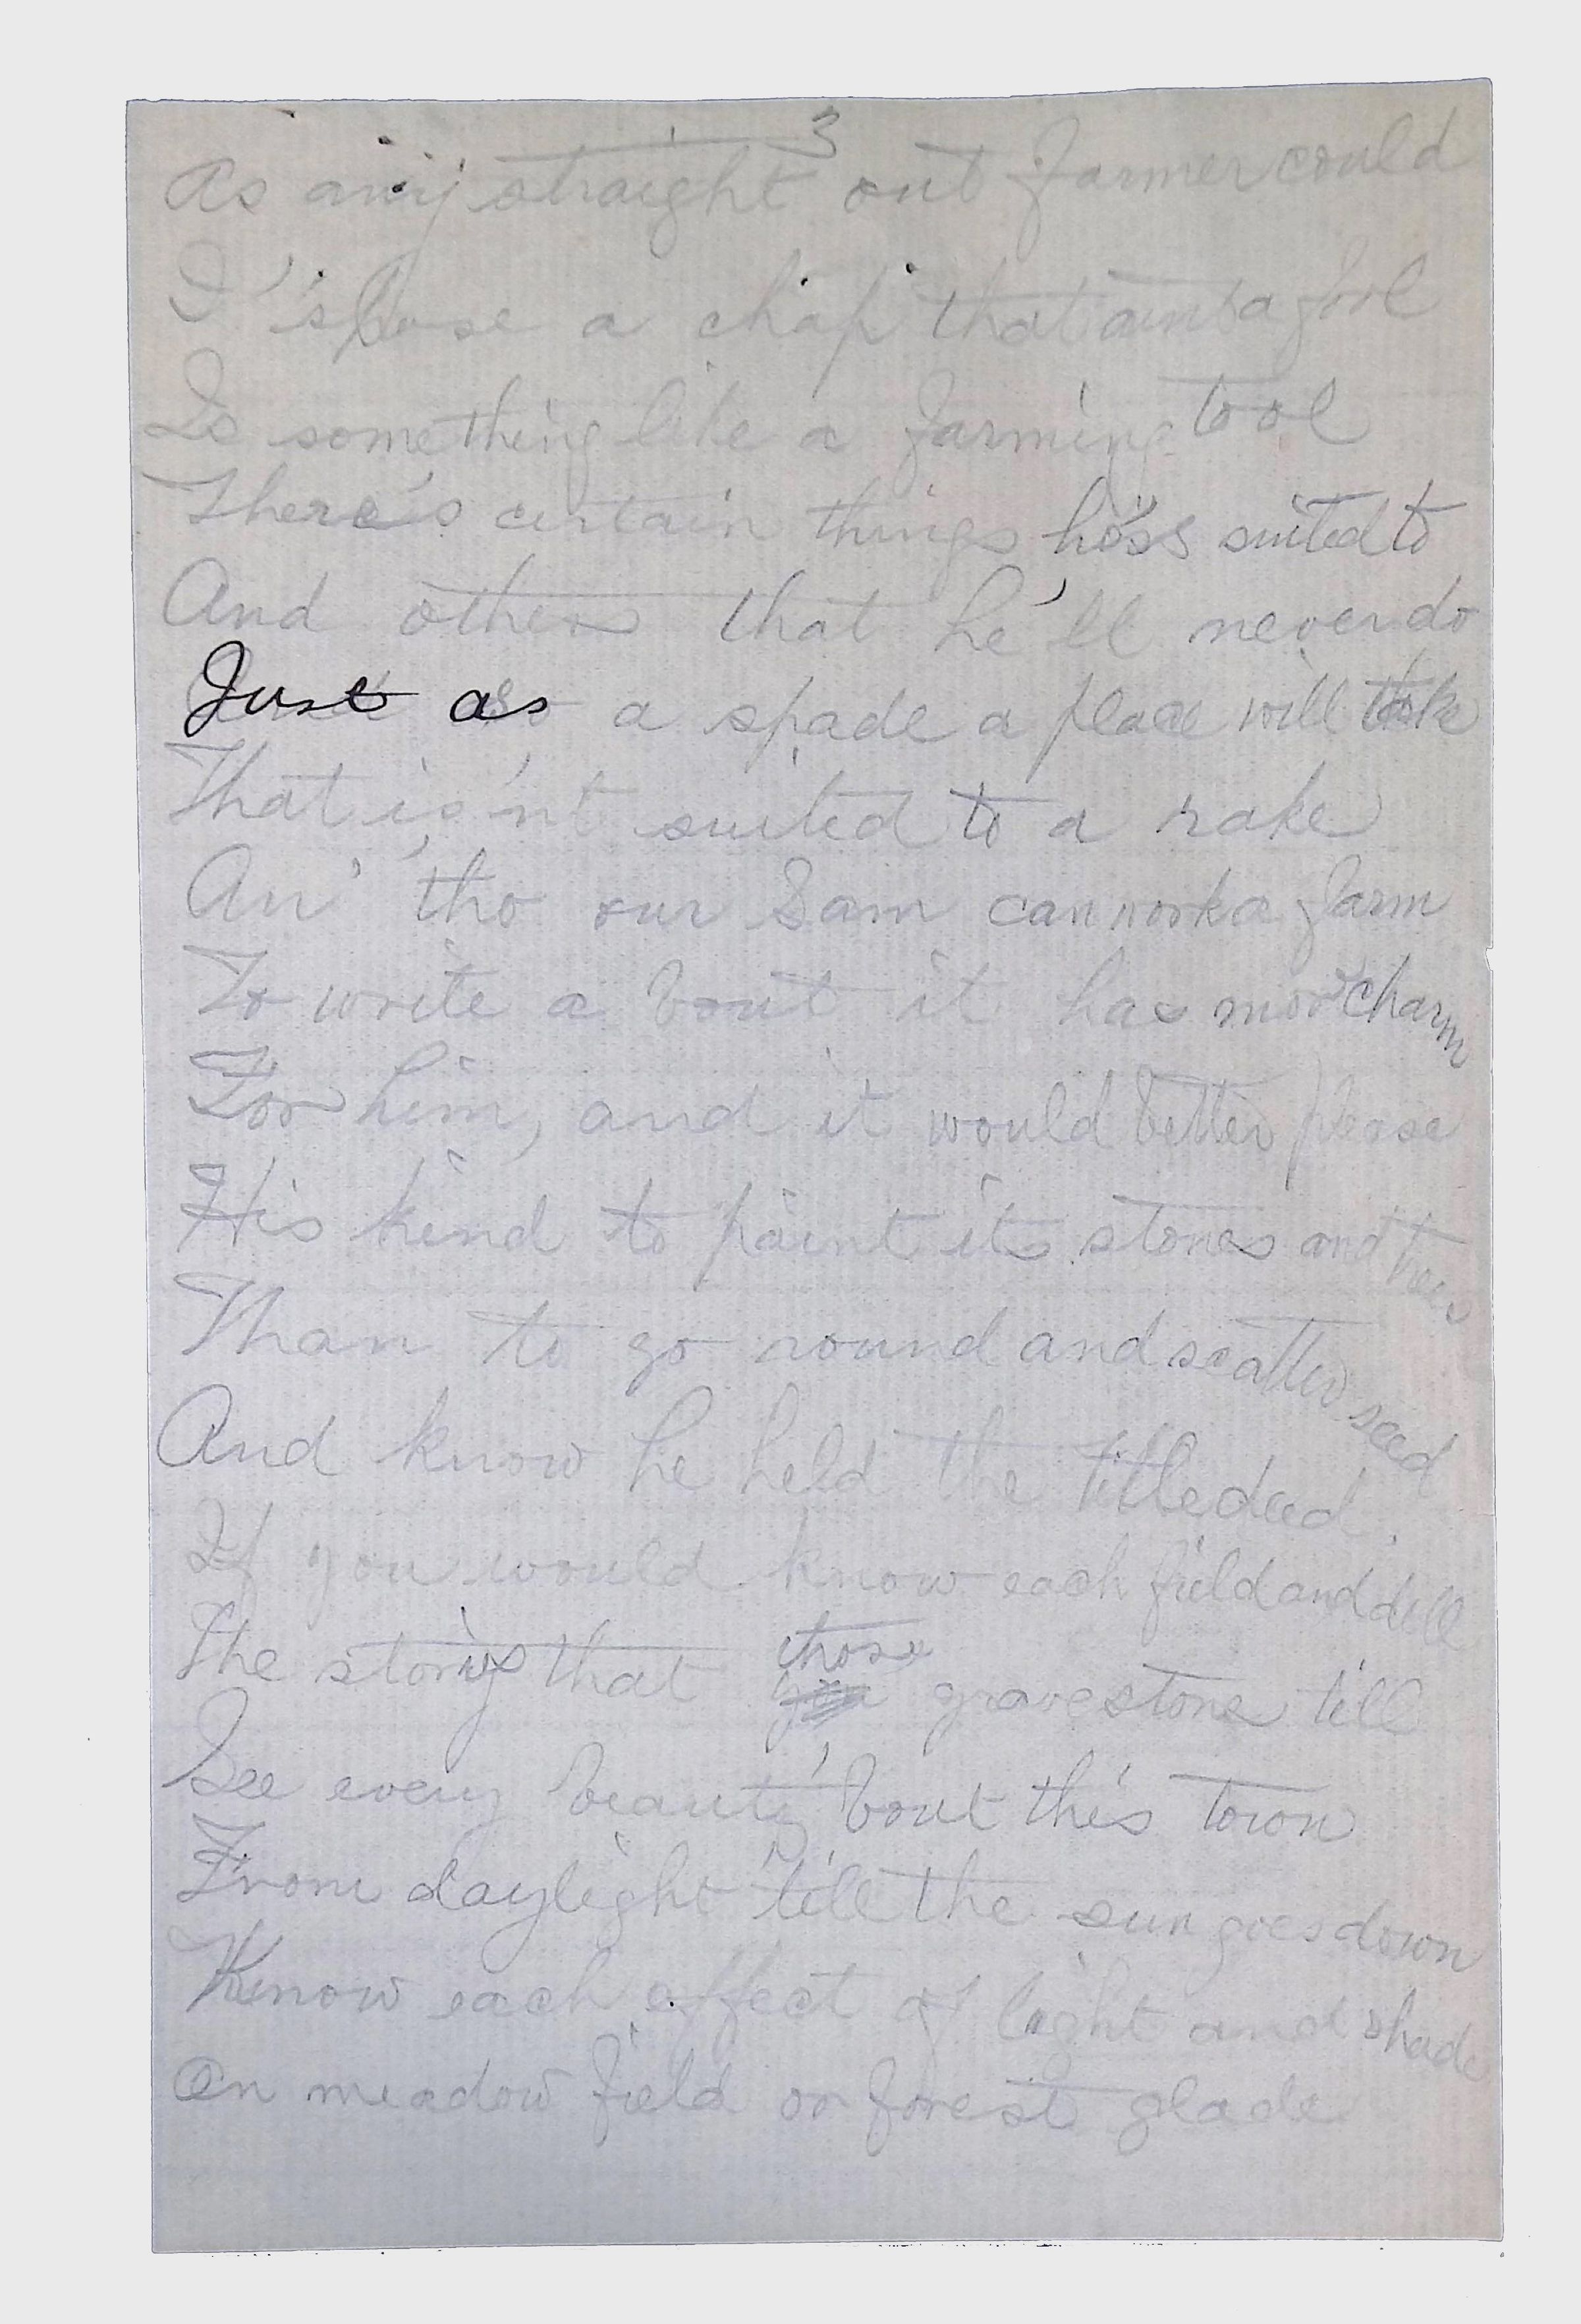 3
As any straight out farmer could
I 'spose a chap that aint a fool
Is something like a farming tool
There's certain things he's suited to
And others that he'll never do
Just as a spade a place will take
That is'nt suited to a rake
An' 'tho our Sam can work a farm
To write a bout it has more charm
For him, and it would better please
His kind to paint its stones and trees
Than to go round and scatter seed
And know he held the title deed.
If you would know each field and dell
The storys that those gravestone tell
See every beauty 'bout this town
From daylight 'till the sun goes down
Know each effect of light and shade
On meadow field or forest glade